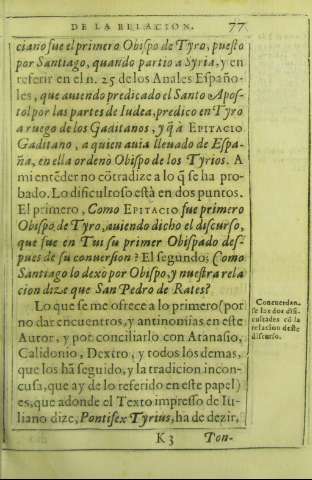 DE LA RELACION. 77
ciano fue el primero Obispo de Tyro, puesto
por Santiago, quando partio a Syria, y en
referir en el n. 25 de los Anales Españo-
les, que auiendo predicado el Santo Apos-
tol por las partes de Iudea, predico en Tyro
a ruego de los Gaditanos, y q̃ à EPITACIO
Gaditano, a quien auia lleuado de Espa-
ña, en ella ordenò Obispo de los Tyrios. A
mi entẽder no cõtradize a lo q̃ se ha pro-
bado. Lo dificultoso està en dos puntos.
El primero, Como EPITACIO fue primero
Obispo de Tyro, auiendo dicho el discurso,
que fue en Tui su primer Obispado des-
pues de su conuersion? El segundo; Como
Santiago lo dexo por Obispo, y nuestra rela
cion dize que San Pedro de Rates?
Lo que se me ofrece a lo primero (por
no dar encuentros, y antinomias en este
Autor, y por conciliarlo con Atanasio,
Calidonio, Dextro, y todos los demas,
que los hã seguido, y la tradicion incon-
cusa, que ay de lo referido en este papel)
es, que adonde el Texto impresso de Iu-
liano dize, Pontifex Tyrius, ha de dezir,
Concuerdan-
se las dos difi-
cultades cõ la
relacion deste
discurso.
K 3 Ton-